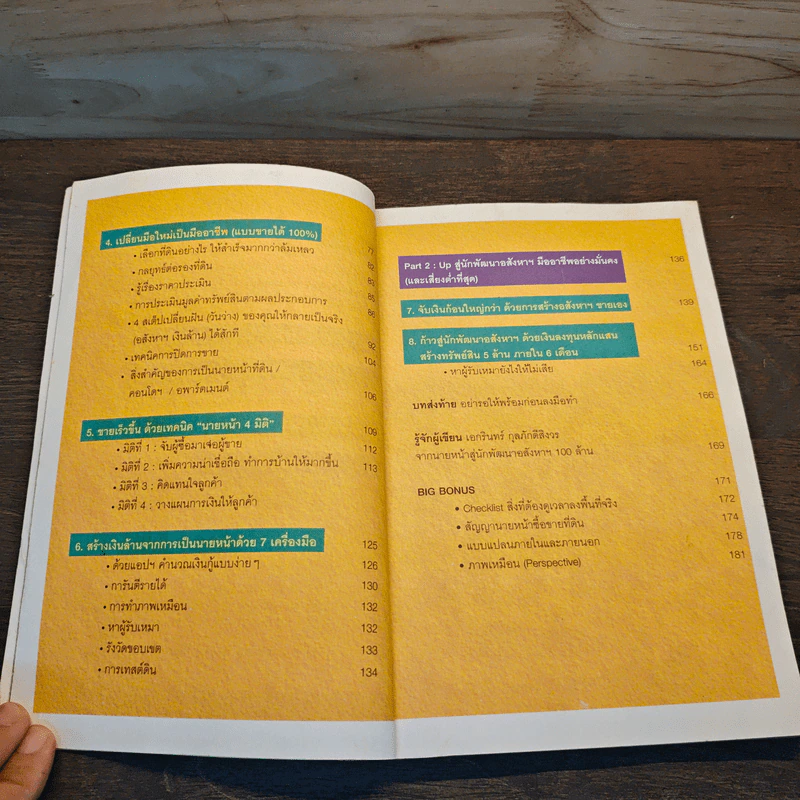 4. เปลี่ยนมือใหม่เป็นมืออาชีพ (แบบขายได้ 100%) 77
• เลือกที่ดินอย่างไร ให้สำเร็จมากกว่าล้มเหลว 82
• กลยุทธ์ต่อรองที่ดิน 83
• รู้เรื่องราคาประเมิน 85
• การประเมินมูลค่าทรัพย์สินตามผลประกอบการ 86
• 4 สเต็ปเปลี่ยนฝัน (วันว่าง) ของคุณให้กลายเป็นจริง
(อสังหาฯ เงินล้าน) ได้สักที 92
• เทคนิคการปิดการขาย 104
• สิ่งสำคัญของการเป็นนายหน้าที่ดิน /
คอนโดฯ / อพาร์ตเมนต์ 106
5. ขายเร็วขึ้น ด้วยเทคนิค “นายหน้า 4 มิติ” 109
• มิติที่ 1 : จับผู้ซื้อมาเจอผู้ขาย 112
• มิติที่ 2 : เพิ่มความน่าเชื่อถือ ทำการบ้านให้มากขึ้น 113
• มิติที่ 3 : คิดแทนใจลูกค้า
• มิติที่ 4 : วางแผนการเงินให้ลูกค้า
6. สร้างเงินล้านจากการเป็นนายหน้าด้วย 7 เครื่องมือ 125
• ด้วยแอปฯ คำนวณเงินกู้แบบง่าย ๆ 126
• การันตีรายได้ 130
• การทำภาพเหมือน 132
• หาผู้รับเหมา 132
• รังวัดขอบเขต 133
• การเทสต์ดิน 134
Part 2 : Up สู่นักพัฒนาอสังหาฯ มืออาชีพอย่างมั่นคง 136
(และเสี่ยงต่ำที่สุด)
7. จับเงินก้อนใหญ่กว่า ด้วยการสร้างอสังหาฯ ขายเอง 139
8. ก้าวสู่นักพัฒนาอสังหาฯ ด้วยเงินลงทุนหลักแสน
สร้างทรัพย์สิน 5 ล้าน ภายใน 6 เดือน 151
• หาผู้รับเหมายังไงให้ไม่เสีย 164
บทส่งท้าย อย่ารอให้พร้อมก่อนลงมือทำ 166
รู้จักผู้เขียน เอกรินทร์ กุลภักดีสิงวร
จากนายหน้าสู่นักพัฒนาอสังหาฯ 100 ล้าน 169
BIG BONUS 171
• Checklist สิ่งที่ต้องดูเวลาลงพื้นที่จริง 172
• สัญญานายหน้าซื้อขายที่ดิน 174
• แบบแปลนภายในและภายนอก 178
• ภาพเหมือน (Perspective) 181